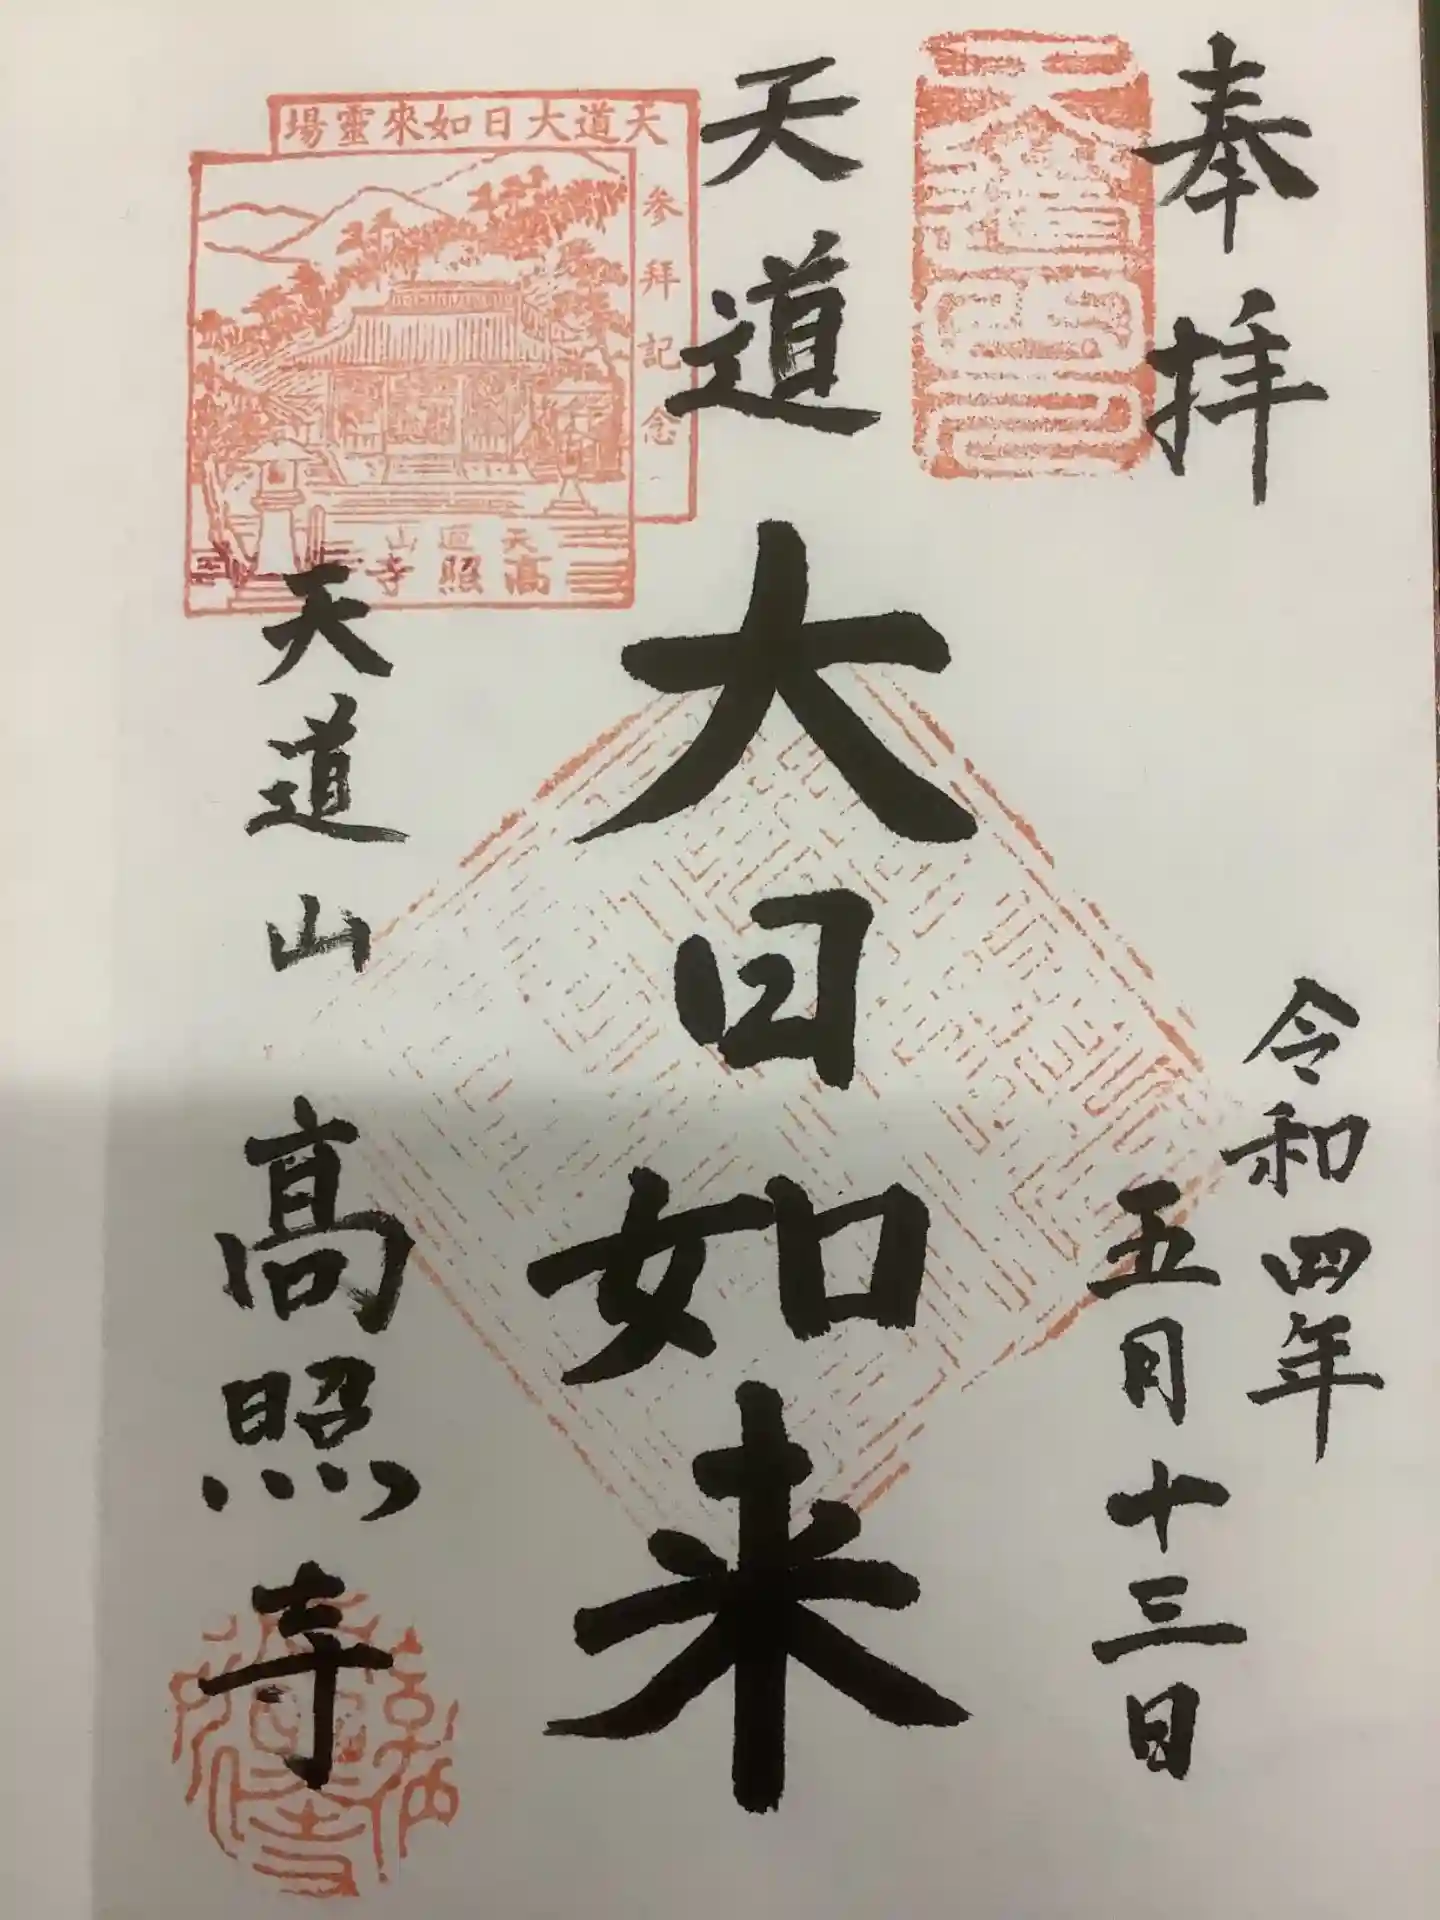 奉拝
令和四年
五月十三日
天道
大日如来
天道大日如來靈場
参拜記念
天道山
高照寺
天道山
高照寺